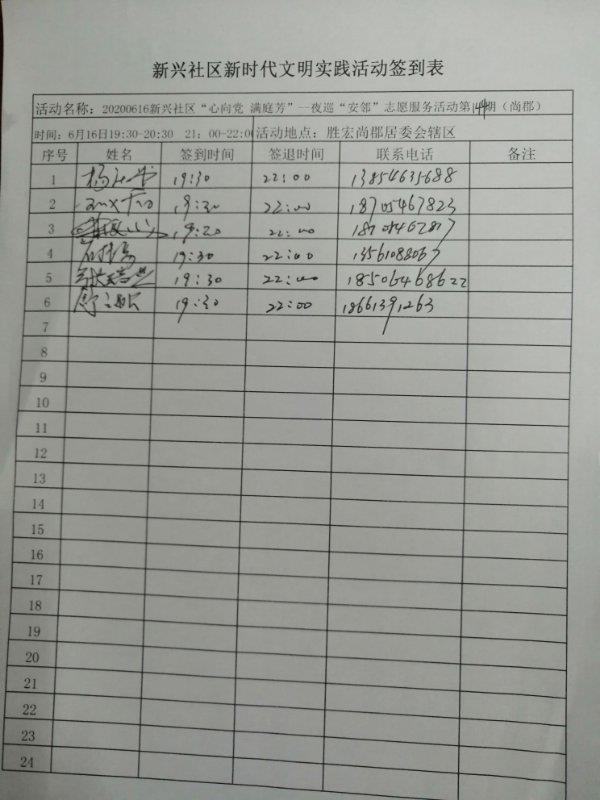 新兴社区新时代文明实践活动签到表
活动名称：20200616新兴社区“心向党 满庭芳”一夜巡“安邻”志愿服务活动第149期（尚郡）
时间：6月16日19:30-20:30 21：00-22:00 活动地点：胜宏尚郡居委会辖区
序号 姓名 签到时间 签退时间 联系电话 备注
1 19:30 22:00 13854635688
2 19:30 22:00 18705467823
3 19:20 22:00
4 19:30 22:00 13561088067
5 19:30 22:00 18506468622
6 19:30 22:00 18661391263
7
8
9
10
11
12
13
14
15
16
17
18
19
20
21
22
23
24